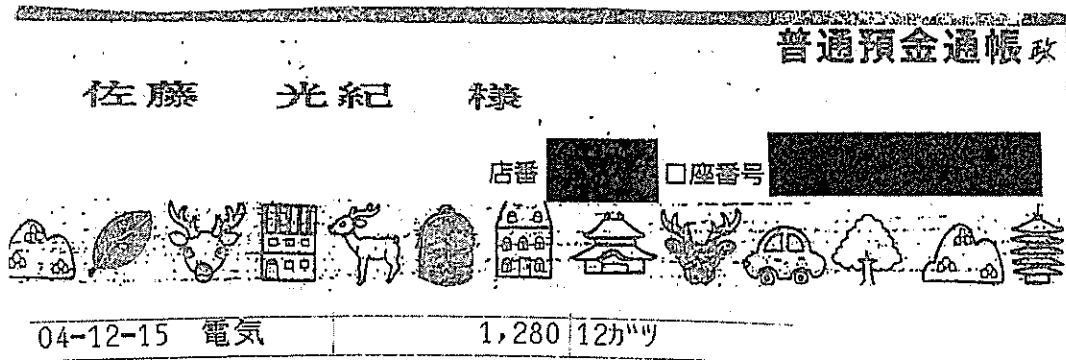 普通預金通帳 政
佐藤 光紀 様
店番 口座番号
04-12-15 電気 1,280 12ガツ